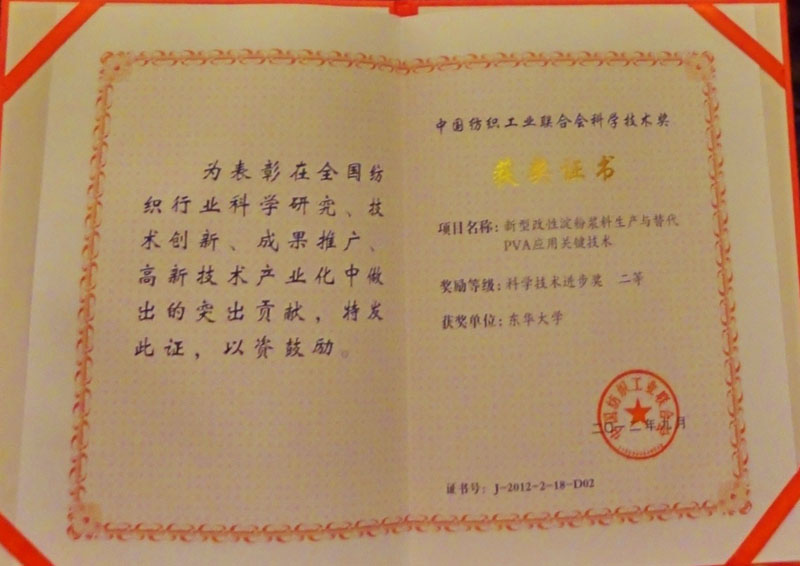 为表彰在全国纺
织行业科学研究、技
术创新、成果推广、
高新技术产业化中做
出的突出贡献，特发
此证，以资鼓励。
中国纺织工业联合会科学技术奖
获奖证书
项目名称：新型改性淀粉浆料生产与替代
PVA应用关键技术
奖励等级：科学技术进步奖 二等
获奖单位：东华大学
中国纺织工业联合会
二〇一二年九月
证书号：J-2012-2-18-D02